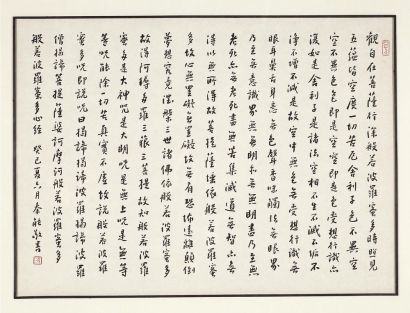 觀自在菩薩行深般若波羅蜜多時照見
五蘊皆空度一切苦厄舍利子色不異空
空不異色色即是空空即是色受想行識亦
復如是舍利子是諸法空相不生不滅不垢不
淨不增不減是故空中無色無受想行識無
眼耳鼻舌身意無色聲香味觸法無眼界
乃至無意識界無無明亦無無明盡乃至無
老死亦無老死盡無苦集滅道無智亦無
得以無所得故菩提薩埵依般若波羅蜜
多故心無罣礙無罣礙故無有恐怖遠離顛倒
夢想究竟涅槃三世諸佛依般若波羅蜜多
故得阿耨多羅三藐三菩提故知般若波羅
蜜多是大神咒是大明咒是無上咒是無等
等咒能除一切苦真實不虛故說般若波羅
蜜多咒即說咒曰揭諦揭諦波羅揭諦波羅
僧揭諦菩提薩婆訶摩訶般若波羅蜜多
般若波羅蜜多心經 癸巳夏六月秦能敬書